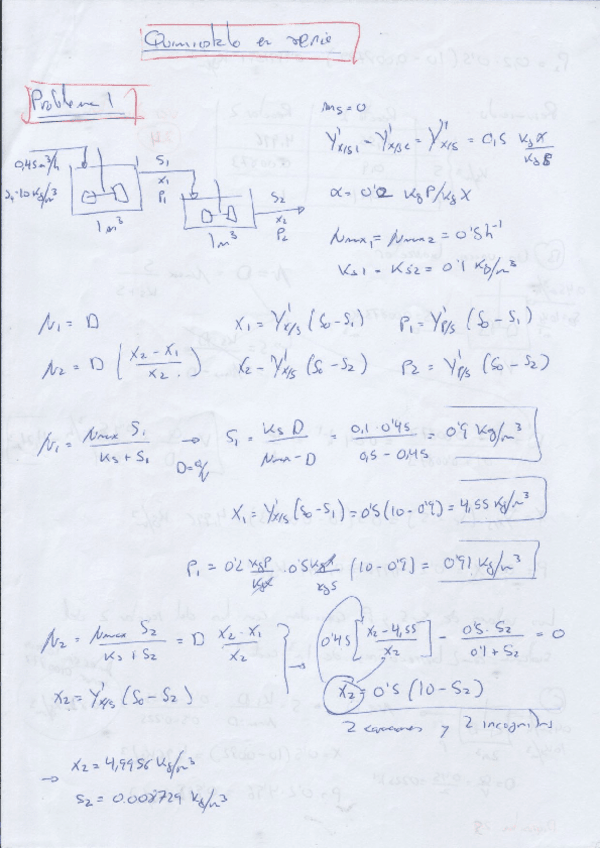 Quimiostato en serie
Problema 1
0,45 m³/h
S₀=10 kg/m³
1 m³
S₁
X₁
P₁
1 m³
S₂
X₂
P₂
ms=0
Y'x/s1 = Y'x/s2 = Y'x/s = 0,5 kg X / kg S
α=0'2 kgP/kgX
μmax₁ = μmax₂ = 0'5 h⁻¹
Ks1 = Ks2 = 0'1 kg/m³
μ₁ = D   X₁ = Y'x/s (S₀-S₁)   P₁ = Y'p/s (S₀-S₁)
μ₂ = D ( (X₂-X₁) / X₂ )   X₂ = Y'x/s (S₀-S₂)   P₂ = Y'p/s (S₀-S₂)
μ₁ = μmax S₁ / (Ks + S₁) → D=q/V   S₁ = Ks D / (μmax - D) = 0,1 · 0'45 / (0,5 - 0,45) = 0'9 kg/m³
X₁ = Y'x/s (S₀-S₁) = 0'5 (10-0'9) = 4,55 kg/m³
P₁ = 0'2 kgP/kgX · 0'5 kgX/kgS (10-0'9) = 0'91 kg/m³
μ₂ = μmax S₂ / (Ks + S₂) = D (X₂-X₁) / X₂ → 0'45 [ (X₂-4,55) / X₂ ] - 0'5·S₂ / (0'1+S₂) = 0
X₂ = Y'x/s (S₀-S₂)   X₂ = 0'5 (10-S₂)
2 ecuaciones y 2 incognitas
→ X₂ = 4,9956 kg/m³
S₂ = 0.008729 kg/m³